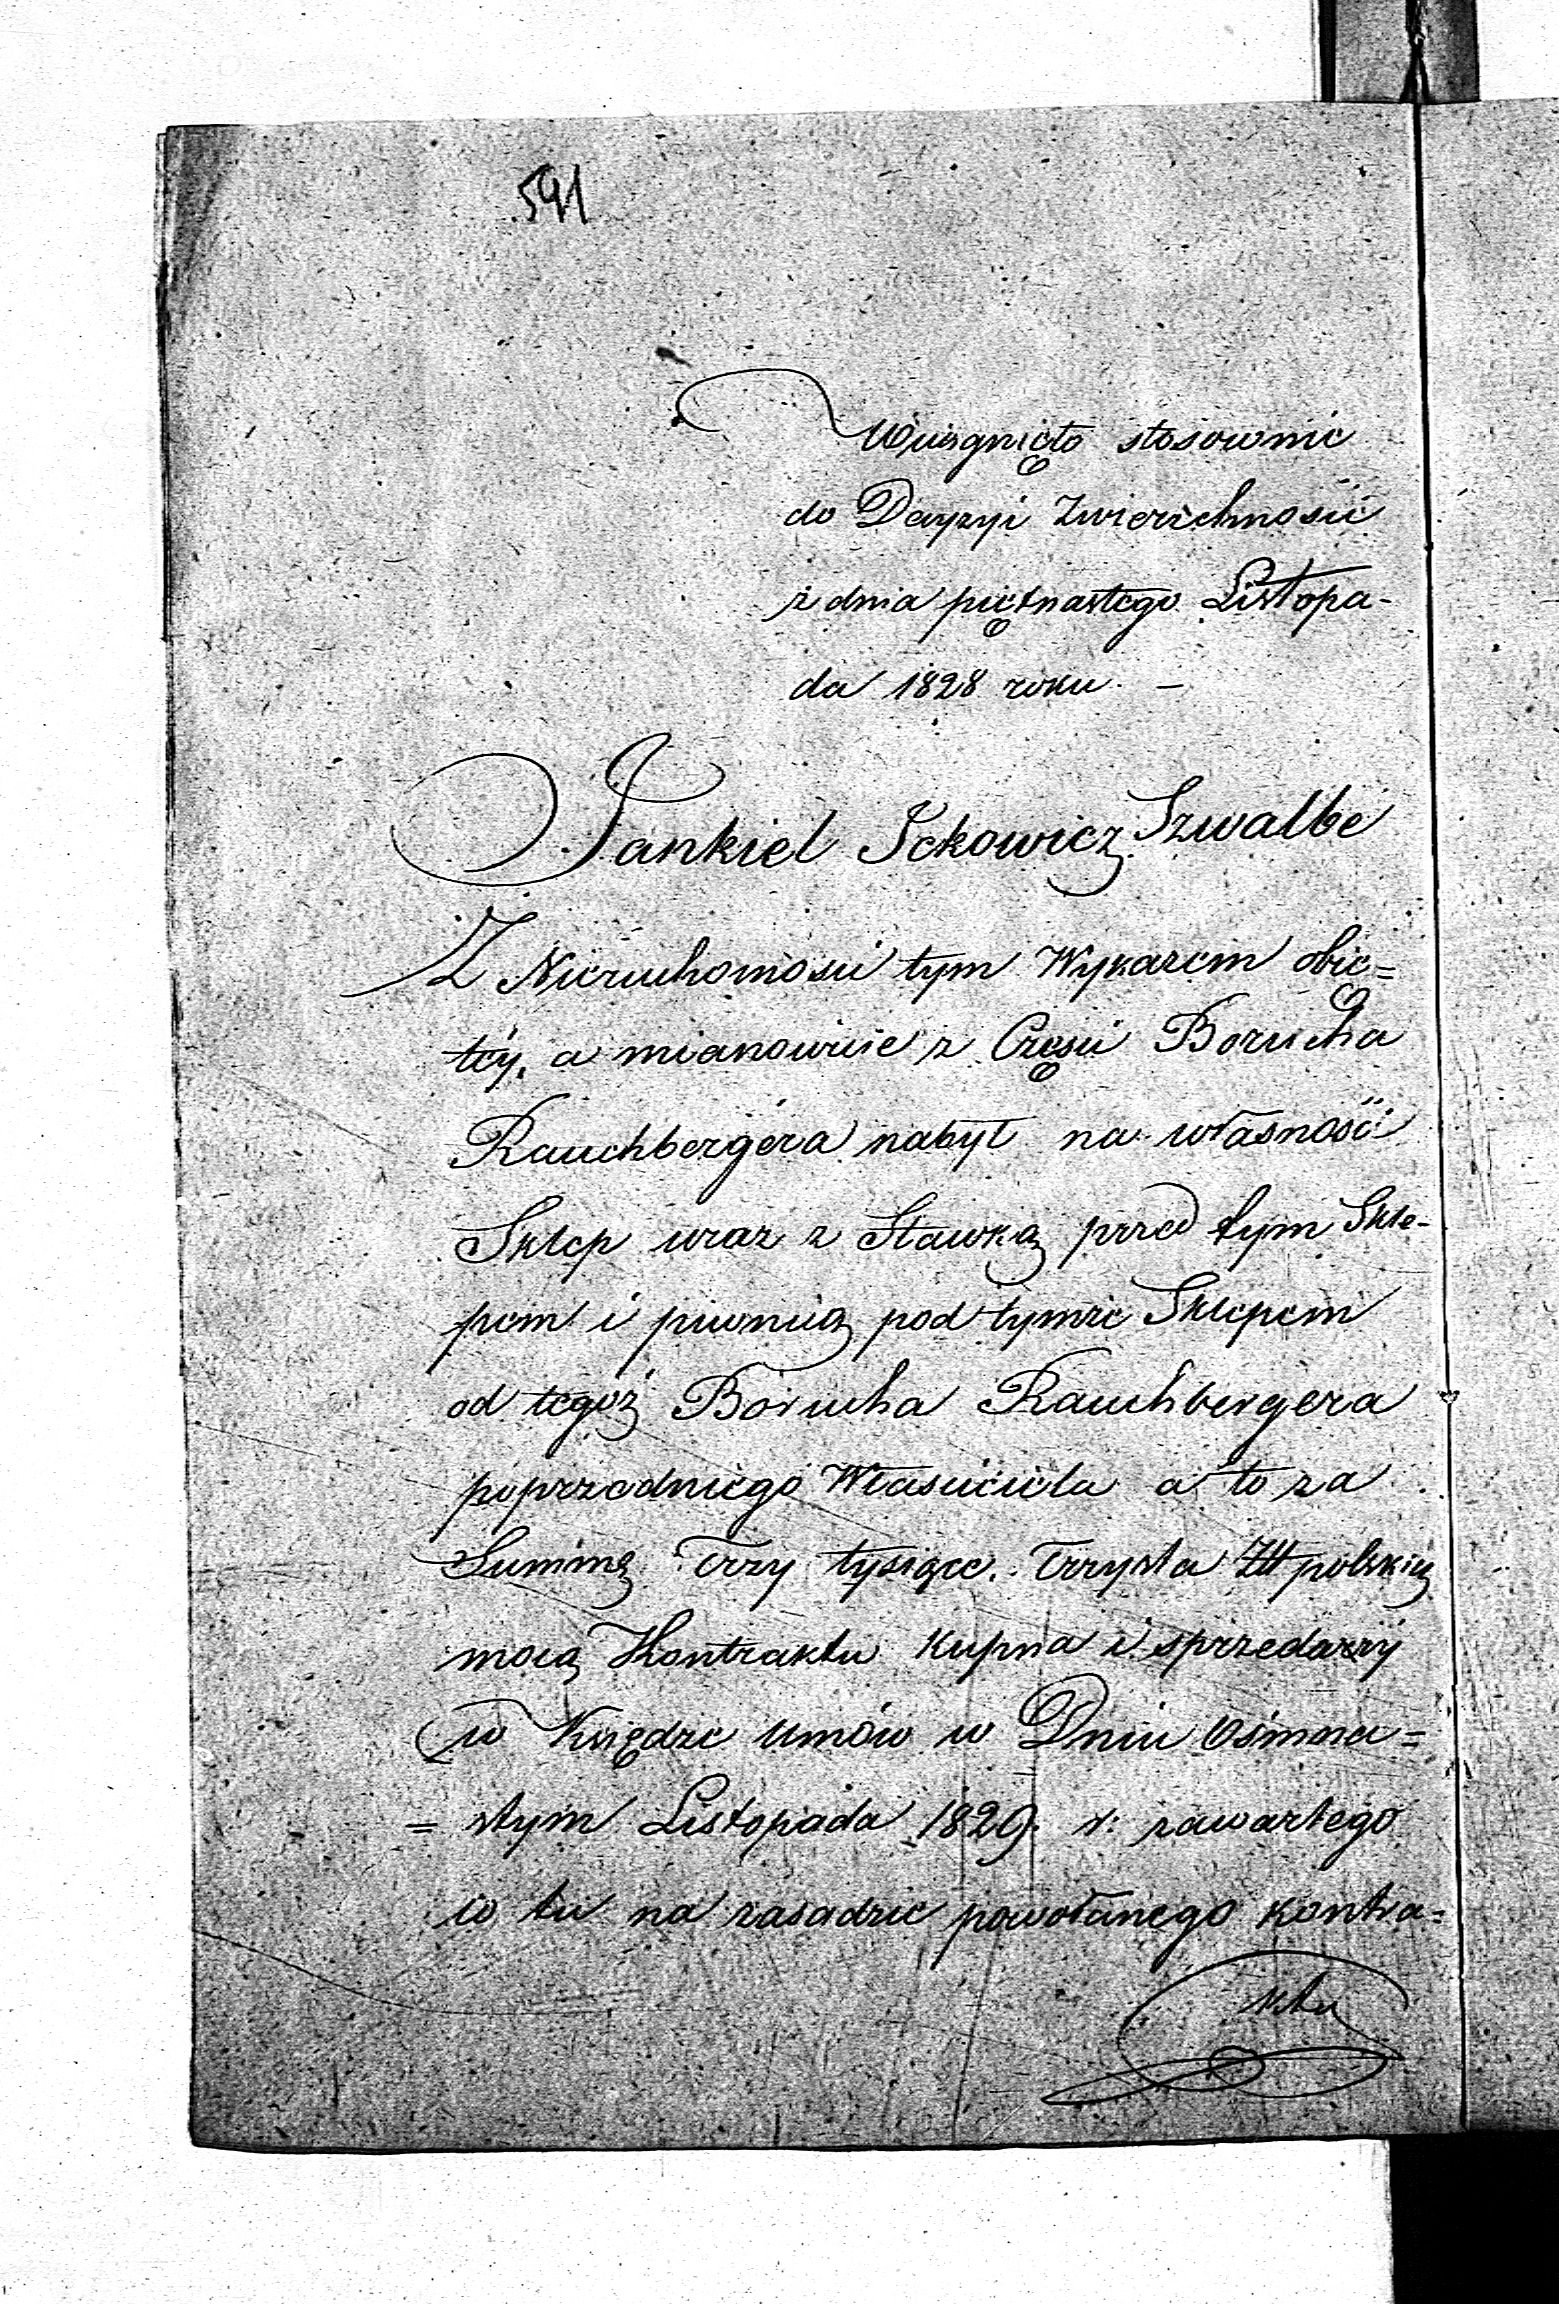 591
Wciągnięto stosownie
do Decyzyi Zwierzchności
z dnia piętnastego Listopa-
da 1828 roku. –
Jankiel Ickowicz Szwalbe
Z Nieruchomości tym Wykazem obię=
téy, a mianowicie z Części Borucha
Rauchbergera nabył na własność
Sklep wraz z Stawką przed tym Skle-
pem i piwnicą pod tymże Sklepem
od tegoż Borucha Rauchbergera
poprzedniego Właściciela a to za
Summę Trzy tysiące Trzysta Złł polskich
mocą Kontraktu kupna i sprzedarzy
w Księdze umów w Dniu Osmna=
= stym Listopada 1829 r: zawartego
co tu na zasadzie powołanego kontra=
ktu